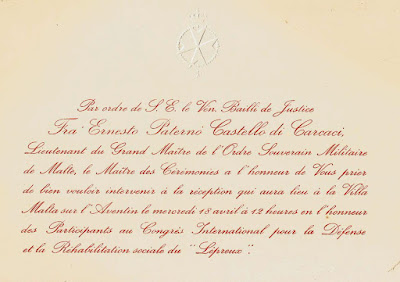 Par ordre de S. E. le Ven. Bailli de Justice
Fra' Ernesto Paternò Castello di Carcaci,
Lieutenant du Grand Maître de l'Ordre Souverain Militaire
de Malte, le Maître des Cérémonies a l'honneur de Vous prier
de bien vouloir intervenir à la réception qui aura lieu à la Villa
Malta sur l'Aventin le mercredi 18 avril à 12 heures en l'honneur
des Participants au Congrès International pour la Défense
et la Réhabilitation sociale du "Lépreux".